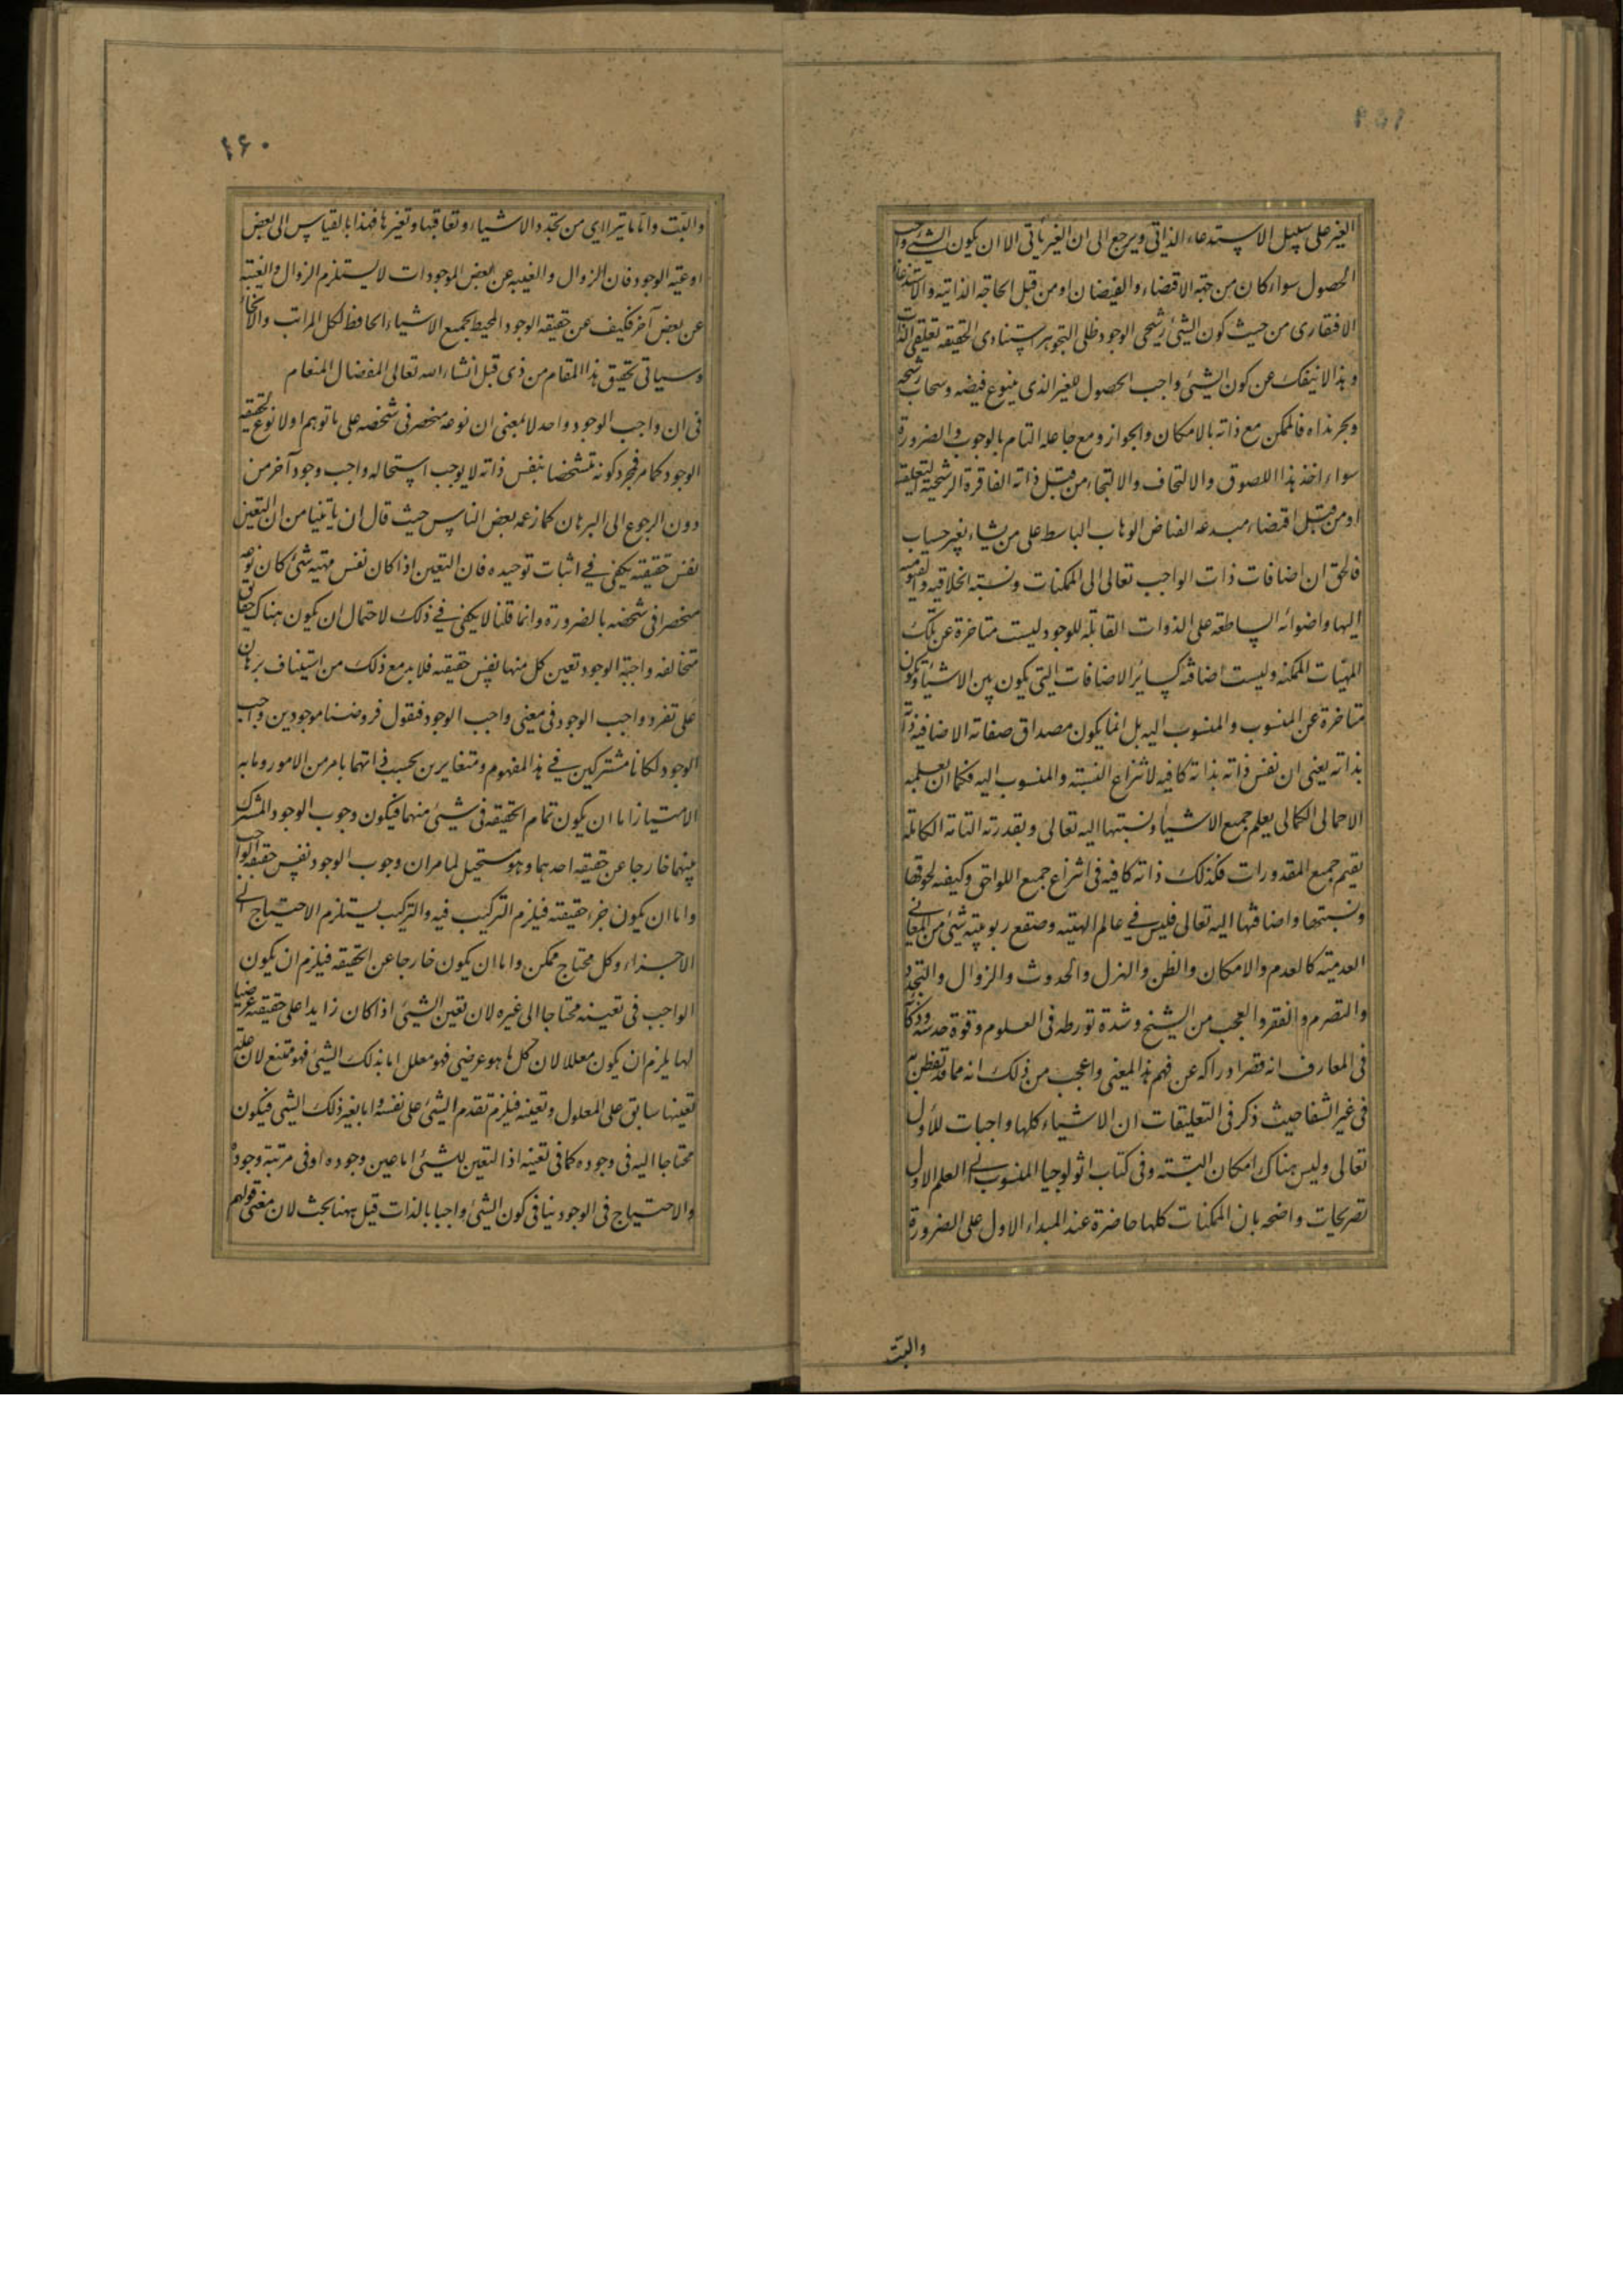 ٤٥٩
الغير على سبيل الاستدعاء الذاتى ويرجع الى ان الغير يأتى الا ان يكون الشئ واجب
الحصول سواء كان من جهة الاقتضاء والفيضان او من قبل الحاجة الذاتيه والاستدعاء
الافتقارى من حيث كون الشئ رشحى الوجود ظلى التجوهر استنادى الحقيقه تعلقى الذات
وهذا لا ينفك عن كون الشئ واجب الحصول للغير الذى ينبوع فيضه وسحاب رشحه
وبحر نداه فالممكن مع ذاته بالامكان والجواز ومع جاعله التام بالوجوب والضرورة
سواء اخذ هذا اللصوق والالتحاف والالتجاء من قبل ذاته الفاقرة الرشحية التعلقيه
او من قبل اقتضاء مبدعه الفياض الوهاب الباسط على من يشاء بغير حساب
فالحق ان اضافات ذات الواجب تعالى الى الممكنات ونسبته الخلاقيه القيوميه
اليها واضوائه الساطعه على الذوات القابلة للوجود ليست متاخرة عن تلك
المهيات الممكنه وليست اضافته كسائر الاضافات التى يكون بين الاشياء ويكون
متاخرة عن المنسوب والمنسوب اليه بل انما يكون مصداق صفاته الاضافيه ذاته
بذاته يعنى ان نفس ذاته بذاته كافيه لانتزاع النسبته والمنسوب اليه فكما ان بعلمه
الاجمالى الكمالى يعلم جميع الاشياء ونسبتها اليه تعالى وبقدرته التامة الكاملة
يقيم جميع المقدورات فكذلك ذاته كافيه فى انتزاع جميع اللواحق وكيفيه لحوقها
ونسبتها واضافتها اليه تعالى فليس فى عالم الهيته وصقع ربوبيته شئ من المعانى
العدميته كالعدم والامكان والظن والهزل والحدوث والزوال والتجدد
والتصرم والفقر والعجب من الشيخ وشدة تورطه فى العلوم وقوة حدسه وذكائه
فى المعارف انه قصر ادراكه عن فهم هذا المعنى واعجب من ذلك انه مما قد تفطن به
فى غير الشفا حيث ذكر فى التعليقات ان الاشياء كلها واجبات للأول
تعالى وليس هناك امكان البتته وفى كتاب اثولوجيا المنسوب الى المعلم الاول
تصريحات واضحه بان الممكنات كلها حاضرة عند المبداء الاول على الضرورة
والبتّ
٤٦٠
والبتّ واما ما يترااى من تجدد الاشياء وتعاقبها وتغيرها فهذا بالقياس الى بعض
اوعيته الوجود فان الزوال والغيبه عن بعض الموجودات لا يستلزم الزوال والغيبته
عن بعض آخر فكيف عن حقيقه الوجود المحيط بجميع الاشياء الحافظ لكل المراتب والانحاء
وسياتى تحقيق هذا المقام من ذى قبل انشاء الله تعالى المفضال المنعام
فى ان واجب الوجود واحد لا بمعنى ان نوعه منحصر فى شخصه على ما توهم اولا نوع لحقيقه
الوجود كما مر فمجرد كونه متشخصا بنفس ذاته لا يوجب استحاله واجب وجود آخر من
دون الرجوع الى البرهان كما زعمه بعض الناس حيث قال ان ما بينا من ان التعين
نفس حقيقته يكفى فى اثبات توحيده فان التعين اذا كان نفس مهيته شئ كان نوعه
منحصرا فى شخصه بالضرورة وانما قلنا لا يكفى فى ذلك لاحتمال ان يكون هناك حقائق
متخالفه واجبة الوجود تعين كل منها نفس حقيقته فلا بد مع ذلك من استيناف برهان
على تفرد واجب الوجود فى معنى واجب الوجود فنقول فروضنا موجودين واجب
الوجود لكانا مشتركين فى هذ المفهوم ومتغايرين بحسب ذاتهما بامر من الامور وما به
الامتياز اما ان يكون تمام الحقيقه فى شيئ منهما فيكون وجوب الوجود المشترك
بينهما خارجا عن حقيقه احدهما وهو مستحيل لما مر ان وجوب الوجود نفس حقيقه الواجب
واما ان يكون جزء حقيقته فيلزم التركيب فيه والتركيب يستلزم الاحتياج الى
الاجزاء وكل محتاج ممكن واما ان يكون خارجا عن الحقيقه فيلزم ان يكون
الواجب فى تعينه محتاجا الى غيره لان تعين الشيئ اذا كان زايدا على حقيقته عرضيا
لها يلزم ان يكون معللا لان كل ما هو عرضى فهو معلل اما بذلك الشيئ فهو ممتنع لان علته
تعينها سابق على المعلول وتعينه فيلزم تقدم الشيئ على نفسه واما بغير ذلك الشيى فيكون
محتاجا اليه فى وجوده كما فى تعينه اذا التعين للشيئ اما عين وجوده او فى مرتبته وجوده
والاحتياج فى الوجود ينافى كون الشيئ واجبا بالذات قيل ههنا بحث لان معنى قولهم